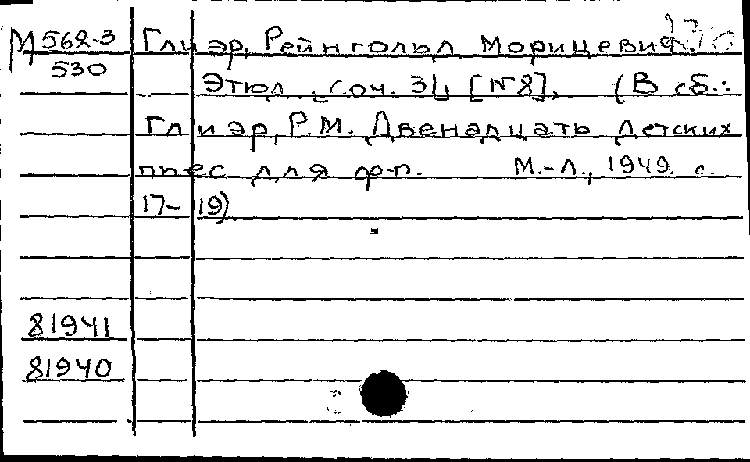 М 562-3 Глиэр, Рейнгольд Морицевич
530 Этюд. Соч. 31, [№8]. (В сб.:
Глиэр, Р.М. Двенадцать детских
пьес для ф-п. М.-Л., 1949. с.
17-19)
81941
81940